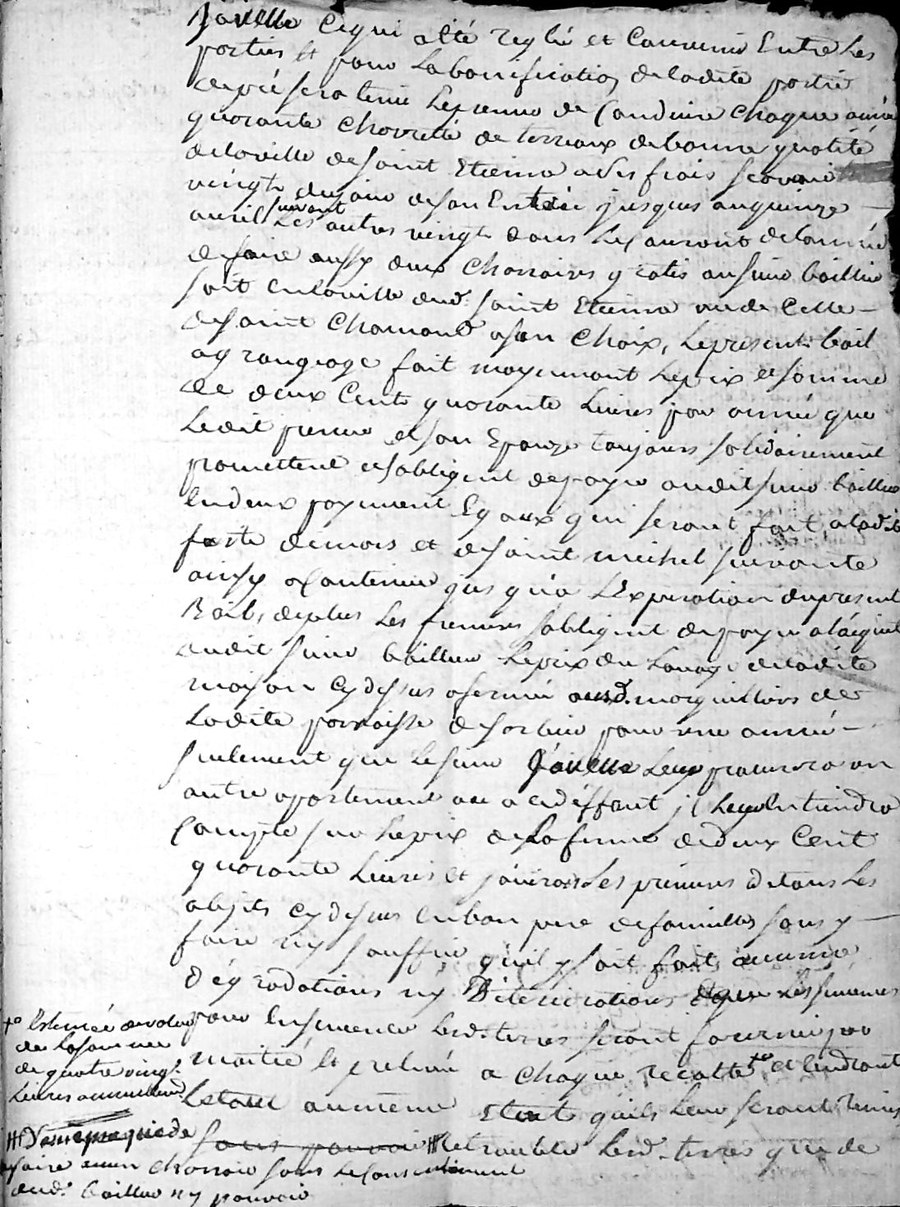 Javelle Ce qui a été réglé et Convenu Entre Les
parties Et pour La bonification de ladite partie
de pré sera tenu Le preneur de Conduire Chaque année
quarante Charreté de terreaux de bonne qualité
de la ville de Saint Etienne a ses frais scavoir
vingt du jour de son Entrée jusques au quinze
avril suivant Les autres vingt dans le Courant de l'année
de faire aussy deux Charrois gratis au sieur bailleur
soit en la ville dud. Saint Etienne ou de Celle
de Saint Chamond a son Choix, Le present bail
a grangeage fait moyennant Le prix et somme
de deux Cents quarante Livres par année que
Ledit preneur et son Epouze toujours solidairement
promettent et s'obligent de payer audit sieur bailleur
en deux payement Egaux qui seront fait a la d.te
feste de mars et de Saint michel suivante
ainsy a Continuer jusqu'a L'Expiration du present
Bail, de plus Les preneurs s'obligent de payer a l'acquit
dudit sieur bailleur Le prix du Louage de ladite
maison cy dessus afermé ausd. marguilliers de
Ladite parroisse de Sorbier pour une année
seulement que Le sieur Javelle Leur procurera un
autre apartement ou a ce deffaut il Leur En tiendra
Compte sur Le prix de La ferme de deux Cent
quarante Livres et jouiront Les preneurs de tous Les
objets cy dessus en bon pere de famille sans y
faire ny souffrir qu'il y soit fait aucune
dégradations ny Déterriorations Les semences
pour Ensemencer Lesd. terres seront fourni par
moitié et prelevé a chaque recolte et rendront
Letout au meme Etat qu'ils Leur seront remis
sans pouvoir ### et troubler Lesd. terres que de
+° Estimée a valeur
de La somme
de quatre vingt
Livres annuellemt
### Dans
faire aucun charroi sans Le Consentement
dud. bailleur ny pouvoir